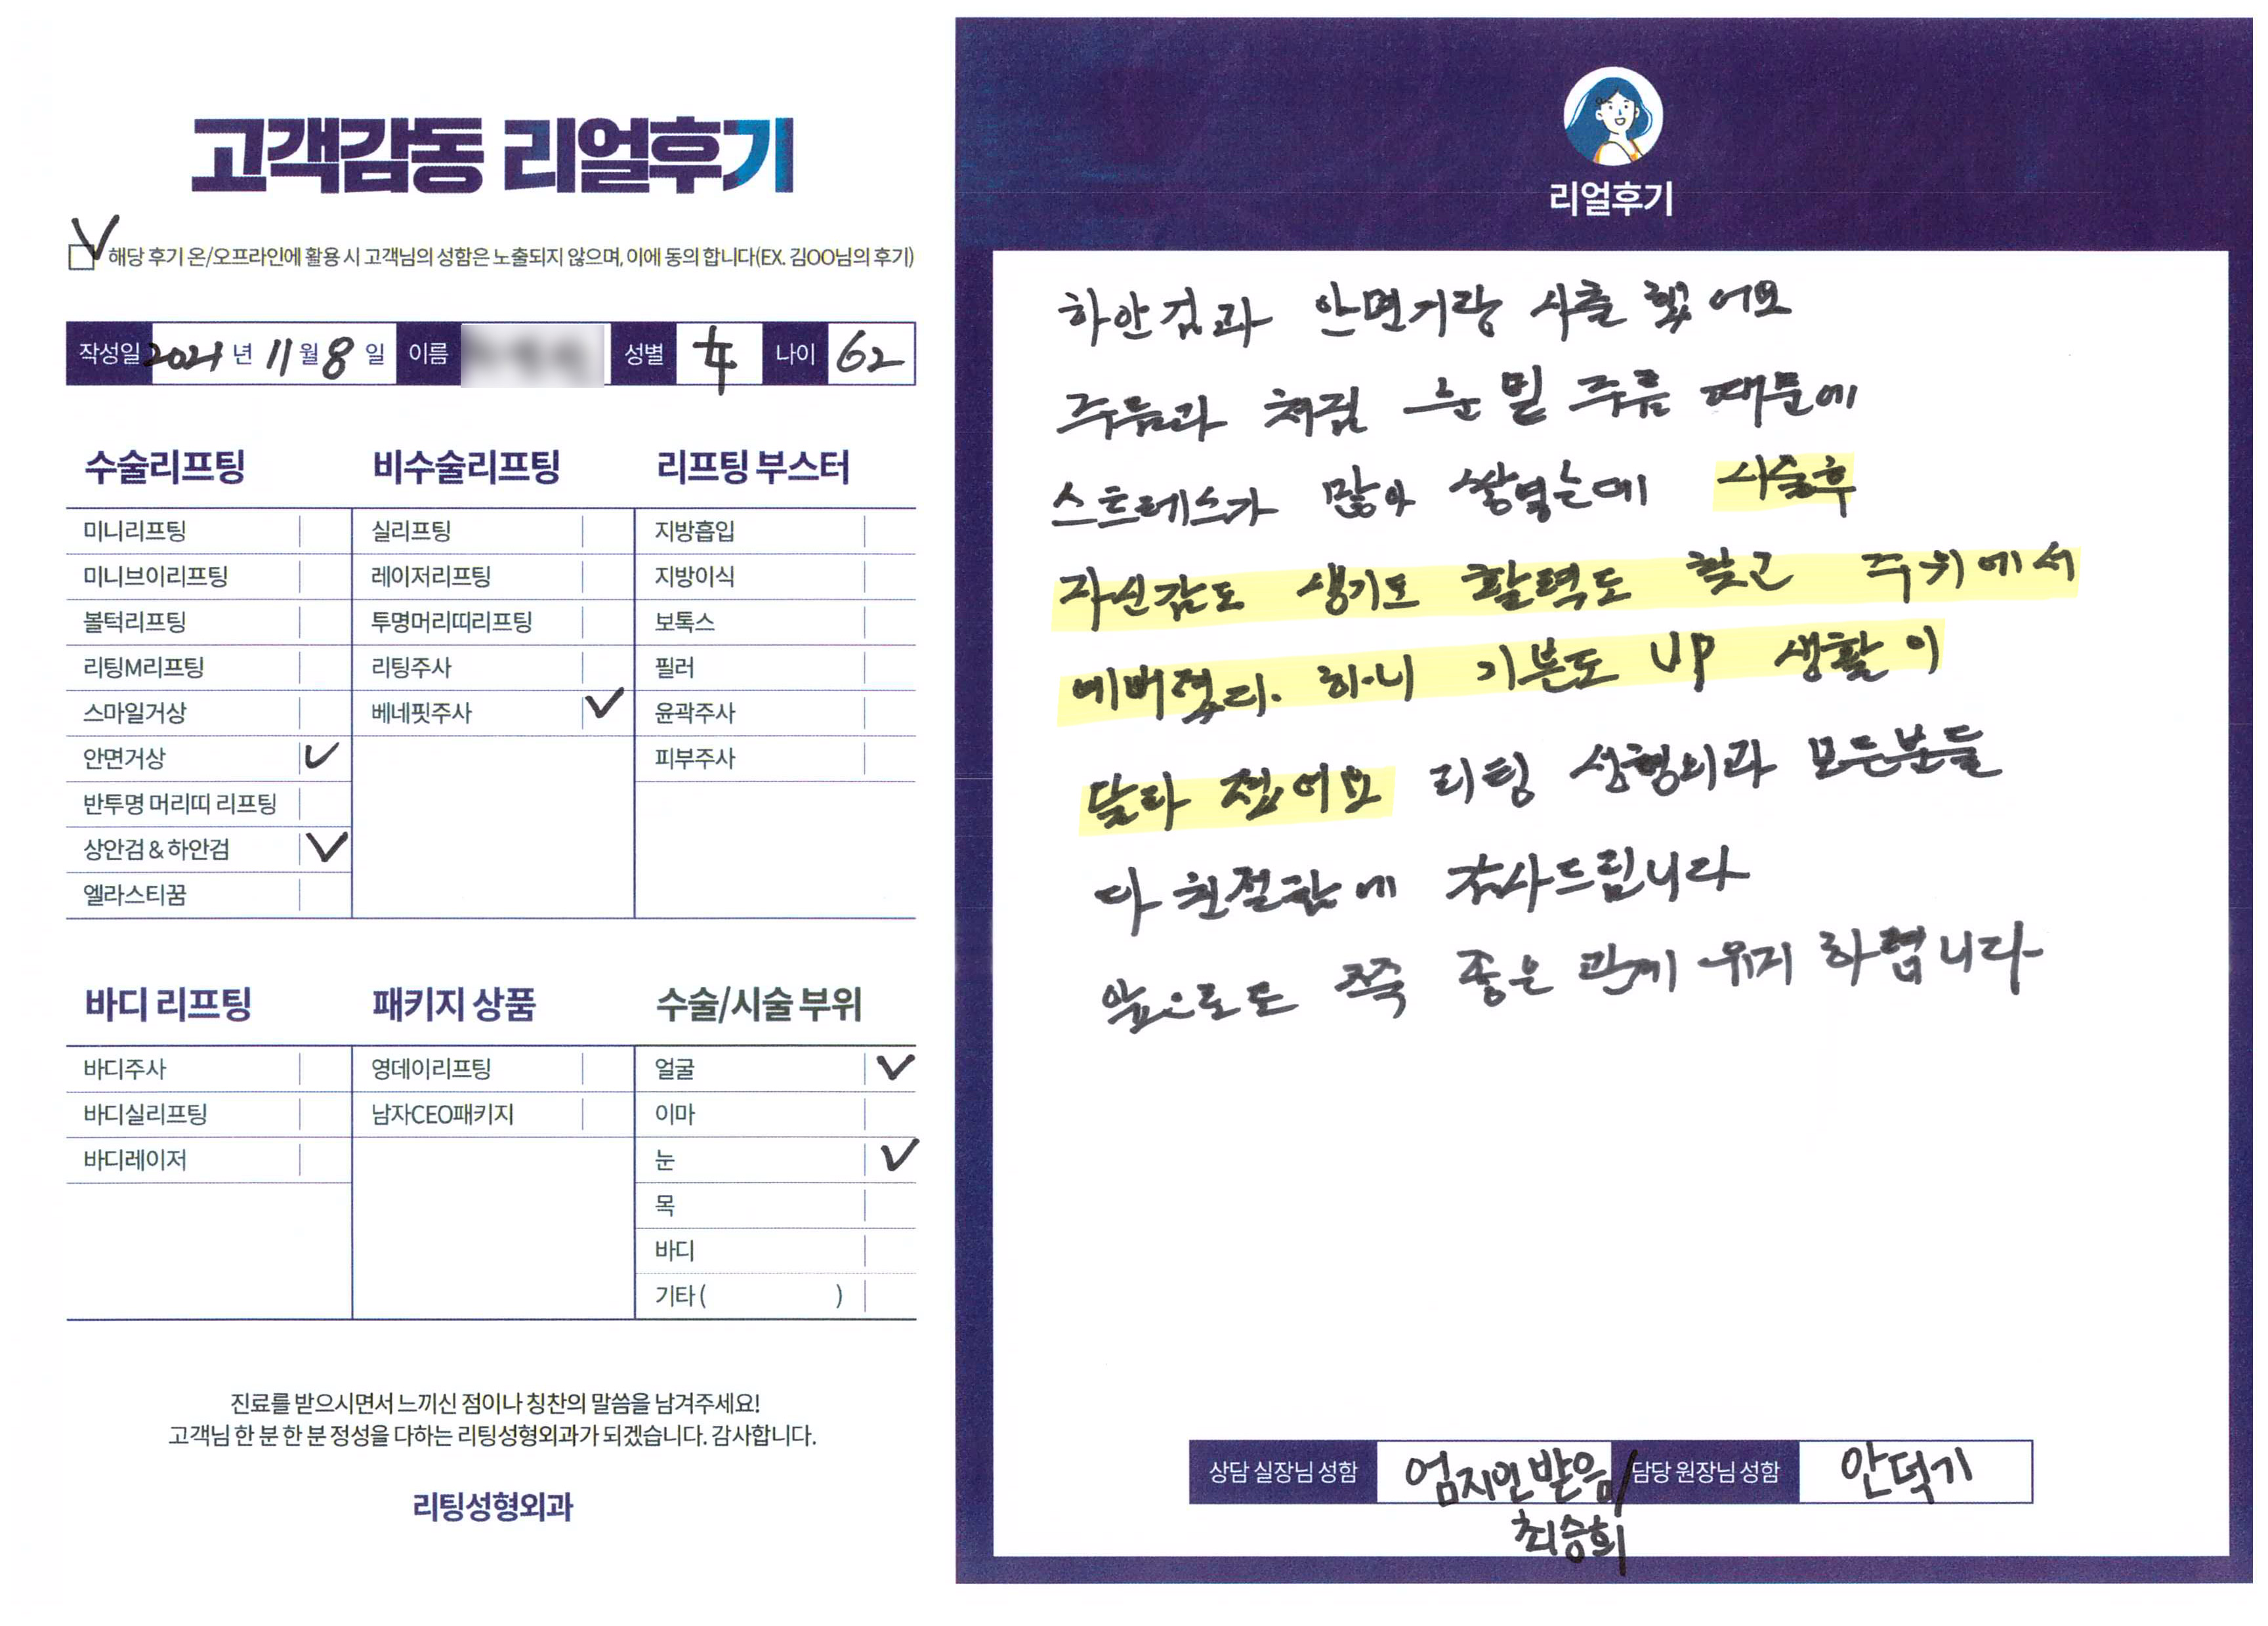 고객감동 리얼후기
해당 후기 온/오프라인에 활용 시 고객님의 성함은 노출되지 않으며, 이에 동의 합니다(EX. 김OO님의 후기)
작성일 2021 년 11 월 8 일 이름 성별 女 나이 62
수술리프팅
미니리프팅
미니브이리프팅
볼턱리프팅
리팅M리프팅
스마일거상
안면거상
반투명 머리띠 리프팅
상안검 & 하안검
엘라스티꿈
비수술리프팅
실리프팅
레이저리프팅
투명머리띠리프팅
리팅주사
베네핏주사
리프팅 부스터
지방흡입
지방이식
보톡스
필러
윤곽주사
피부주사
바디 리프팅
바디주사
바디실리프팅
바디레이저
패키지 상품
영데이리프팅
남자CEO패키지
수술/시술 부위
얼굴
이마
눈
목
바디
기타 ( )
진료를 받으시면서 느끼신 점이나 칭찬의 말씀을 남겨주세요!
고객님 한 분 한 분 정성을 다하는 리팅성형외과가 되겠습니다. 감사합니다.
리팅성형외과
리얼후기
하안검과 안면거랑 시술 했어요
주름과 처짐 눈 밑 주름 때문에
스트레스가 많아 쌓였는데 시술후
자신감도 생기도 활력도 찾고 주위에서
예버졌다. 하니 기분도 UP 생활이
달라 졌어요 리팅 성형외과 모든분들
다 친절함에 감사드립니다
앞으로도 쭉 좋은 관계 유지 하렵니다
상담 실장님 성함 엄지연 받음 / 담당 원장님 성함 안덕기
최승희